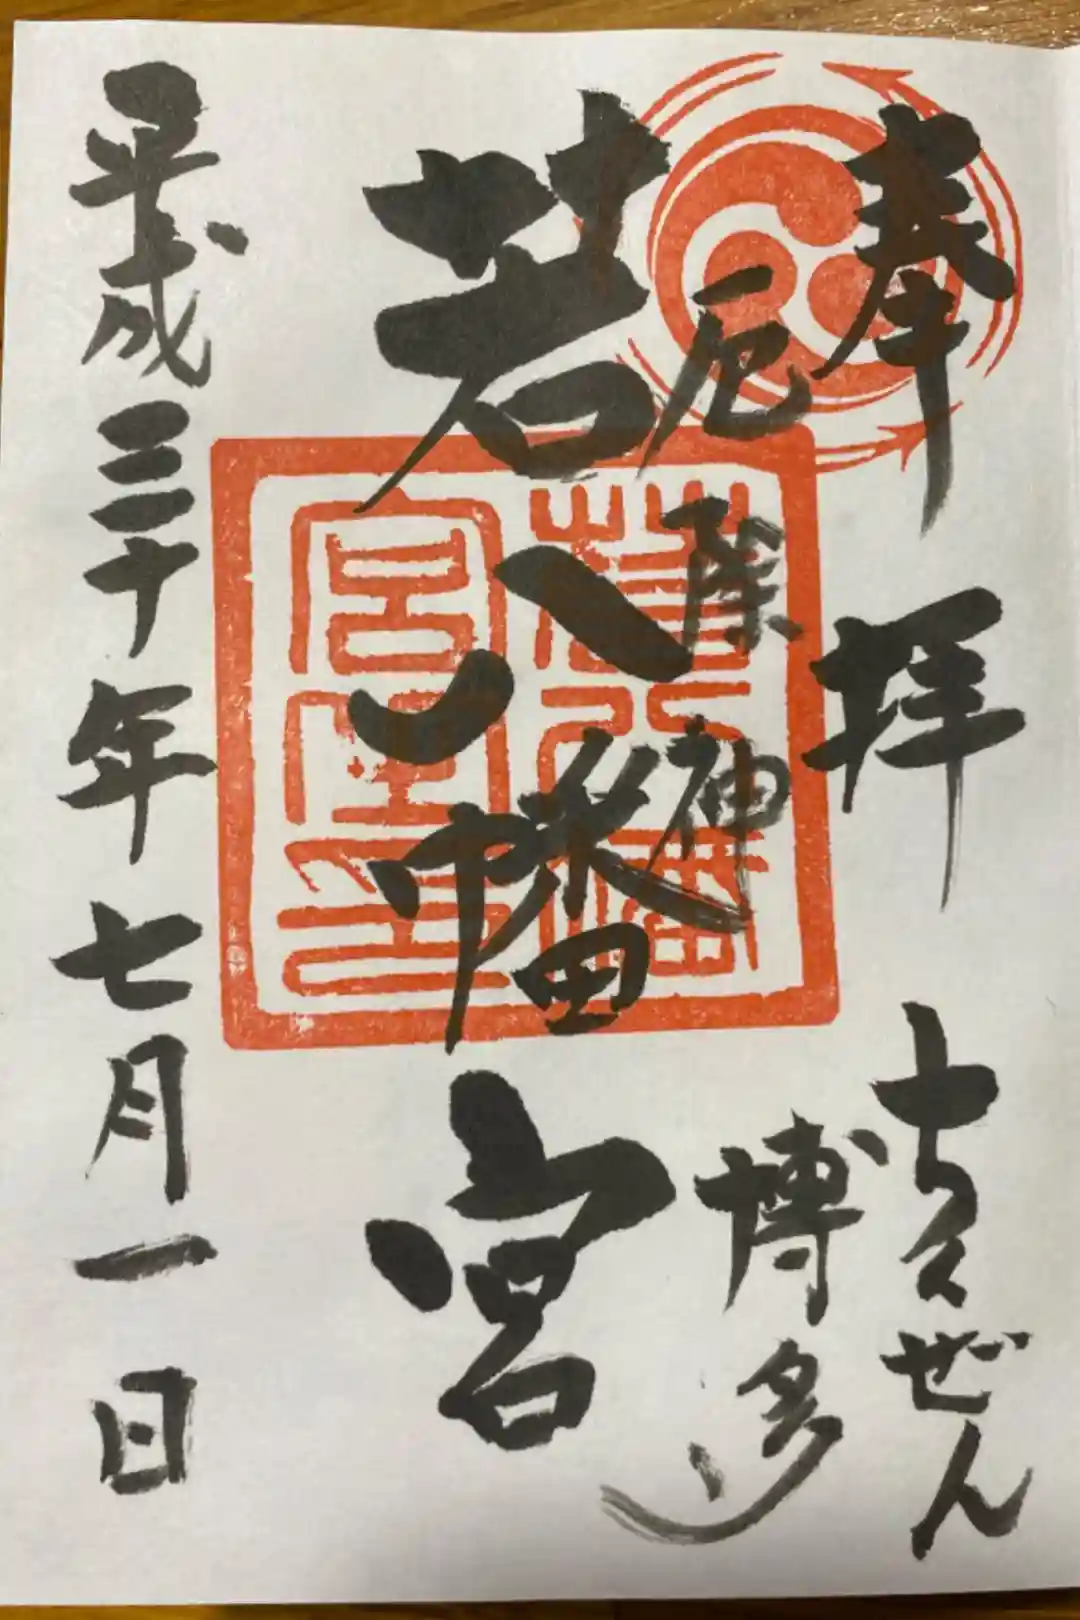 奉拝 ちくぜん
厄除神 博多
若八幡宮
平成三十年七月一日
若八幡
宮之印